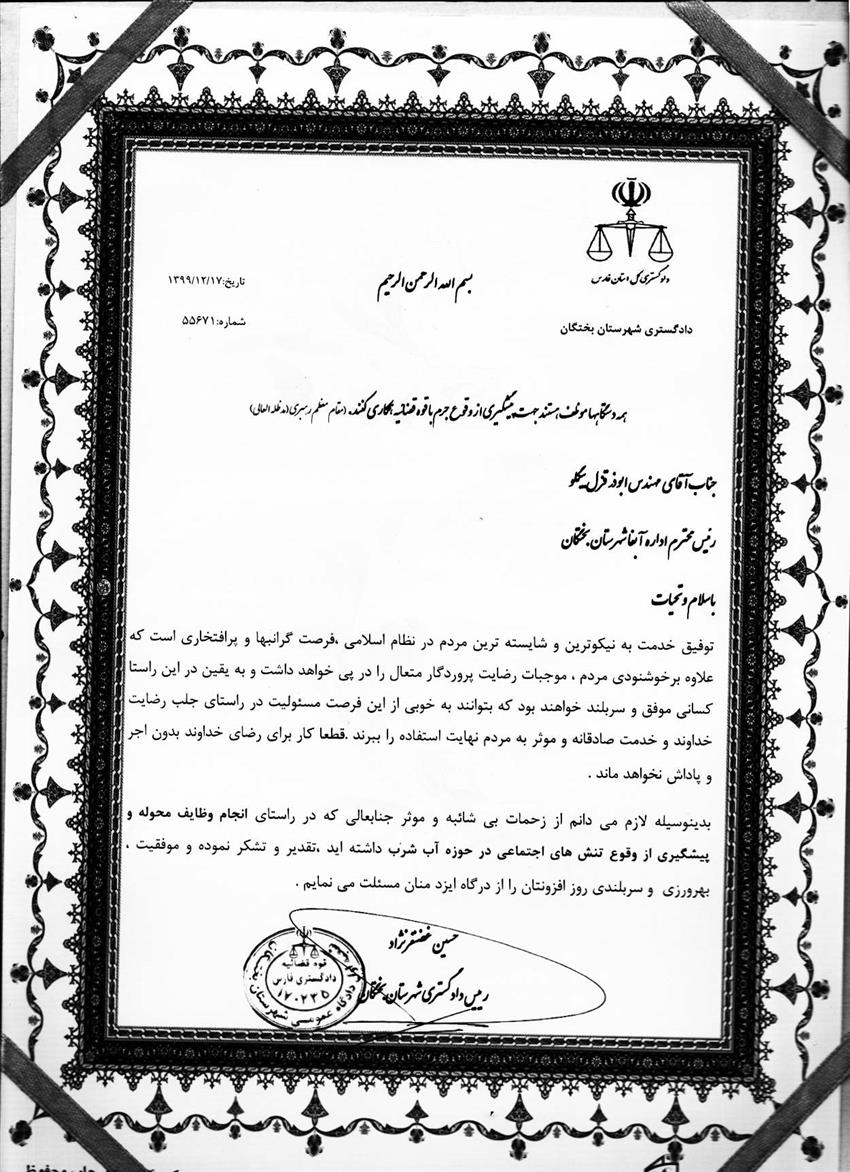 دادگستری کل استان فارس
بسم الله الرحمن الرحیم
تاریخ:۱۳۹۹/۱۲/۱۷
دادگستری شهرستان بختگان
شماره:۵۵۶۷۱
همه دستگاهها موظف هستند جهت پیشگیری از وقوع جرم با قوه قضائیه همکاری کنند. (مقام معظم رهبری(مدظله العالی)
جناب آقای مهندس ابوذر قزل بیگلو
رئیس محترم اداره آبفا شهرستان بختگان
باسلام و تحیات
توفیق خدمت به نیکوترین و شایسته ترین مردم در نظام اسلامی ،فرصت گرانبها و پرافتخاری است که
علاوه برخوشنودی مردم ، موجبات رضایت پروردگار متعال را در پی خواهد داشت و به یقین در این راستا
کسانی موفق و سربلند خواهند بود که بتوانند به خوبی از این فرصت مسئولیت در راستای جلب رضایت
خداوند و خدمت صادقانه و موثر به مردم نهایت استفاده را ببرند .قطعا کار برای رضای خداوند بدون اجر
و پاداش نخواهد ماند .
بدینوسیله لازم می دانم از زحمات بی شائبه و موثر جنابعالی که در راستای انجام وظایف محوله و
پیشگیری از وقوع تنش های اجتماعی در حوزه آب شرب داشته اید ،تقدیر و تشکر نموده و موفقیت ،
بهرورزی و سربلندی روز افزونتان را از درگاه ایزد منان مسئلت می نمایم .
حسین غضنفرنژاد
رییس دادگستری شهرستان بختگان
قوه قضائیه
دادگستری فارس
۱۷۰۲۳۵
دادگاه عمومی شهرستان بختگان